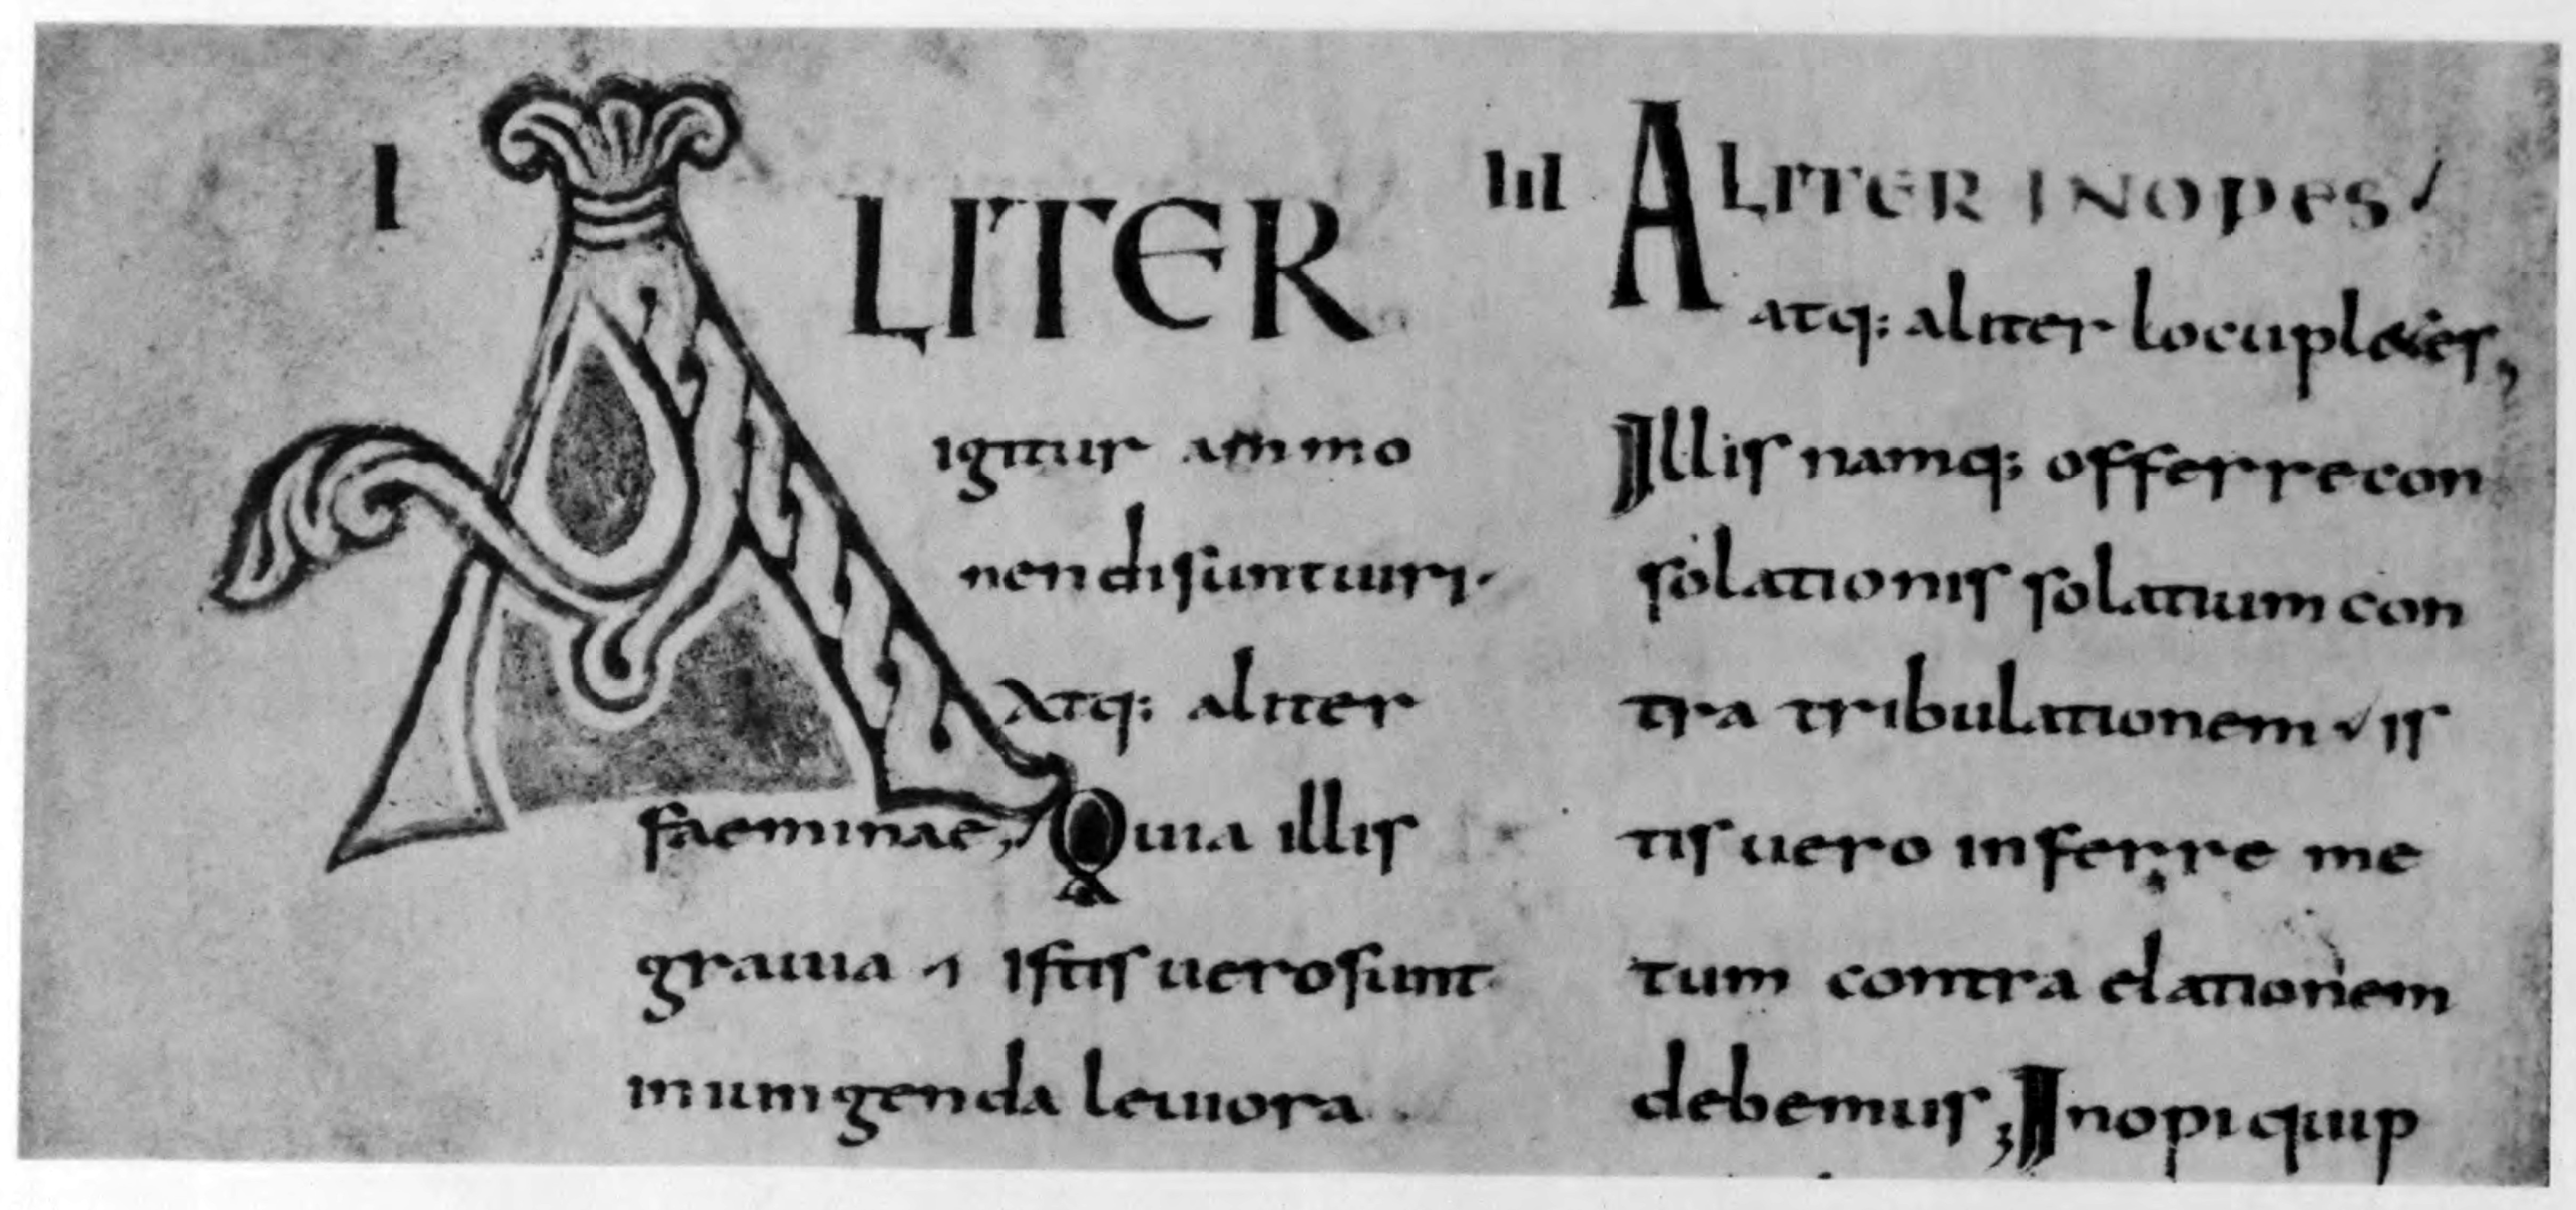 I ALITER
igitur ammo
nendi sunt uiri·
Atq: aliter
faeminae, Quia illis
grauia ⁊ istis uero sunt
iniungenda leuiora
III ALITER INOPES/
atq: aliter locupletes,
Illis namq; offerre con
solationis solatium con
tra tribulationem ✓ is
tis uero inferre me
tum contra elationem
debemus; Inopi quip